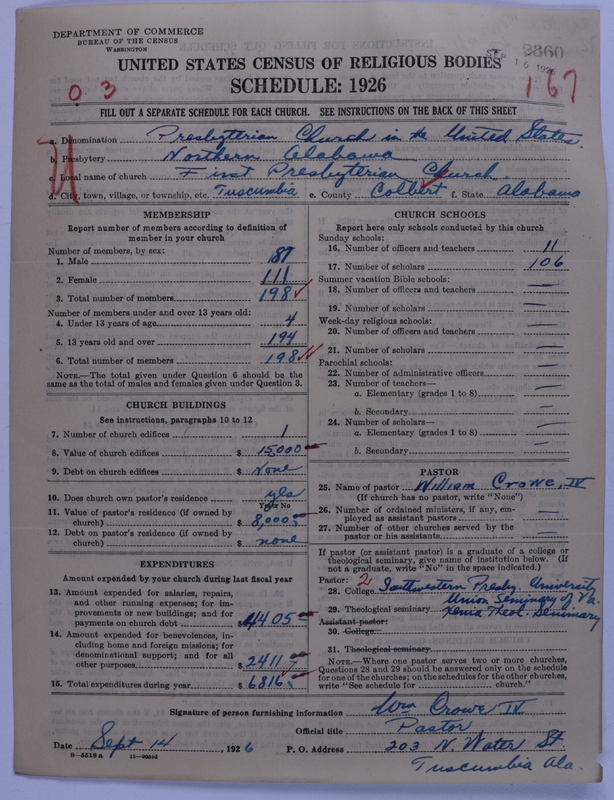 DEPARTMENT OF COMMERCE
BUREAU OF THE CENSUS
WASHINGTON
2860
SEP 16 192
UNITED STATES CENSUS OF RELIGIOUS BODIES
SCHEDULE: 1926
0 3
167
FILL OUT A SEPARATE SCHEDULE FOR EACH CHURCH. SEE INSTRUCTIONS ON THE BACK OF THIS SHEET
a. Denomination Presbyterian Church in the United States.
b. Presbytery Northern Alabama
c. Local name of church First Presbyterian Church.
d. City, town, village, or township, etc. Tuscumbia e. County Colbert f. State Alabama
MEMBERSHIP
Report number of members according to definition of member in your church
Number of members, by sex:
1. Male 87
2. Female 111
3. Total number of members 198 ✓
Number of members under and over 13 years old:
4. Under 13 years of age 4
5. 13 years old and over 194
6. Total number of members 198 ✓✓
NOTE.—The total given under Question 6 should be the same as the total of males and females given under Question 3.
CHURCH BUILDINGS
See instructions, paragraphs 10 to 12
7. Number of church edifices 1
8. Value of church edifices $ 15,000
9. Debt on church edifices $ None
10. Does church own pastor's residence yes
Yes or No
11. Value of pastor's residence (if owned by church) $ 8,000
12. Debt on pastor's residence (if owned by church) $ none
EXPENDITURES
Amount expended by your church during last fiscal year
13. Amount expended for salaries, repairs, and other running expenses; for improvements or new buildings; and for payments on church debt $ 4405
14. Amount expended for benevolences, including home and foreign missions; for denominational support; and for all other purposes $ 2411
15. Total expenditures during year $ 6816
CHURCH SCHOOLS
Report here only schools conducted by this church
Sunday schools:
16. Number of officers and teachers 11
17. Number of scholars 106
Summer vacation Bible schools:
18. Number of officers and teachers —
19. Number of scholars —
Week-day religious schools:
20. Number of officers and teachers —
21. Number of scholars —
Parochial schools:
22. Number of administrative officers —
23. Number of teachers—
a. Elementary (grades 1 to 8) —
b. Secondary —
24. Number of scholars—
a. Elementary (grades 1 to 8) —
b. Secondary —
PASTOR
25. Name of pastor William Crowe, IV
(If church has no pastor, write "None")
26. Number of ordained ministers, if any, employed as assistant pastors —
27. Number of other churches served by the pastor or his assistants —
If pastor (or assistant pastor) is a graduate of a college or theological seminary, give name of institution below. (If not a graduate, write "No" in the space indicated.)
Pastor: 2
28. College Southwestern Presby. University
Union Seminary of Va.
29. Theological seminary Xenia Theol. Seminary
Assistant pastor:
30. College
31. Theological seminary
NOTE.—Where one pastor serves two or more churches, Questions 28 and 29 should be answered only on the schedule for one of the churches; on the schedules for the other churches, write "See schedule for ______ church."
Signature of person furnishing information Wm Crowe IV
Official title Pastor
Date Sept 14, 1926 P. O. Address 203 N. Water St
Tuscumbia Ala.
8—5518a